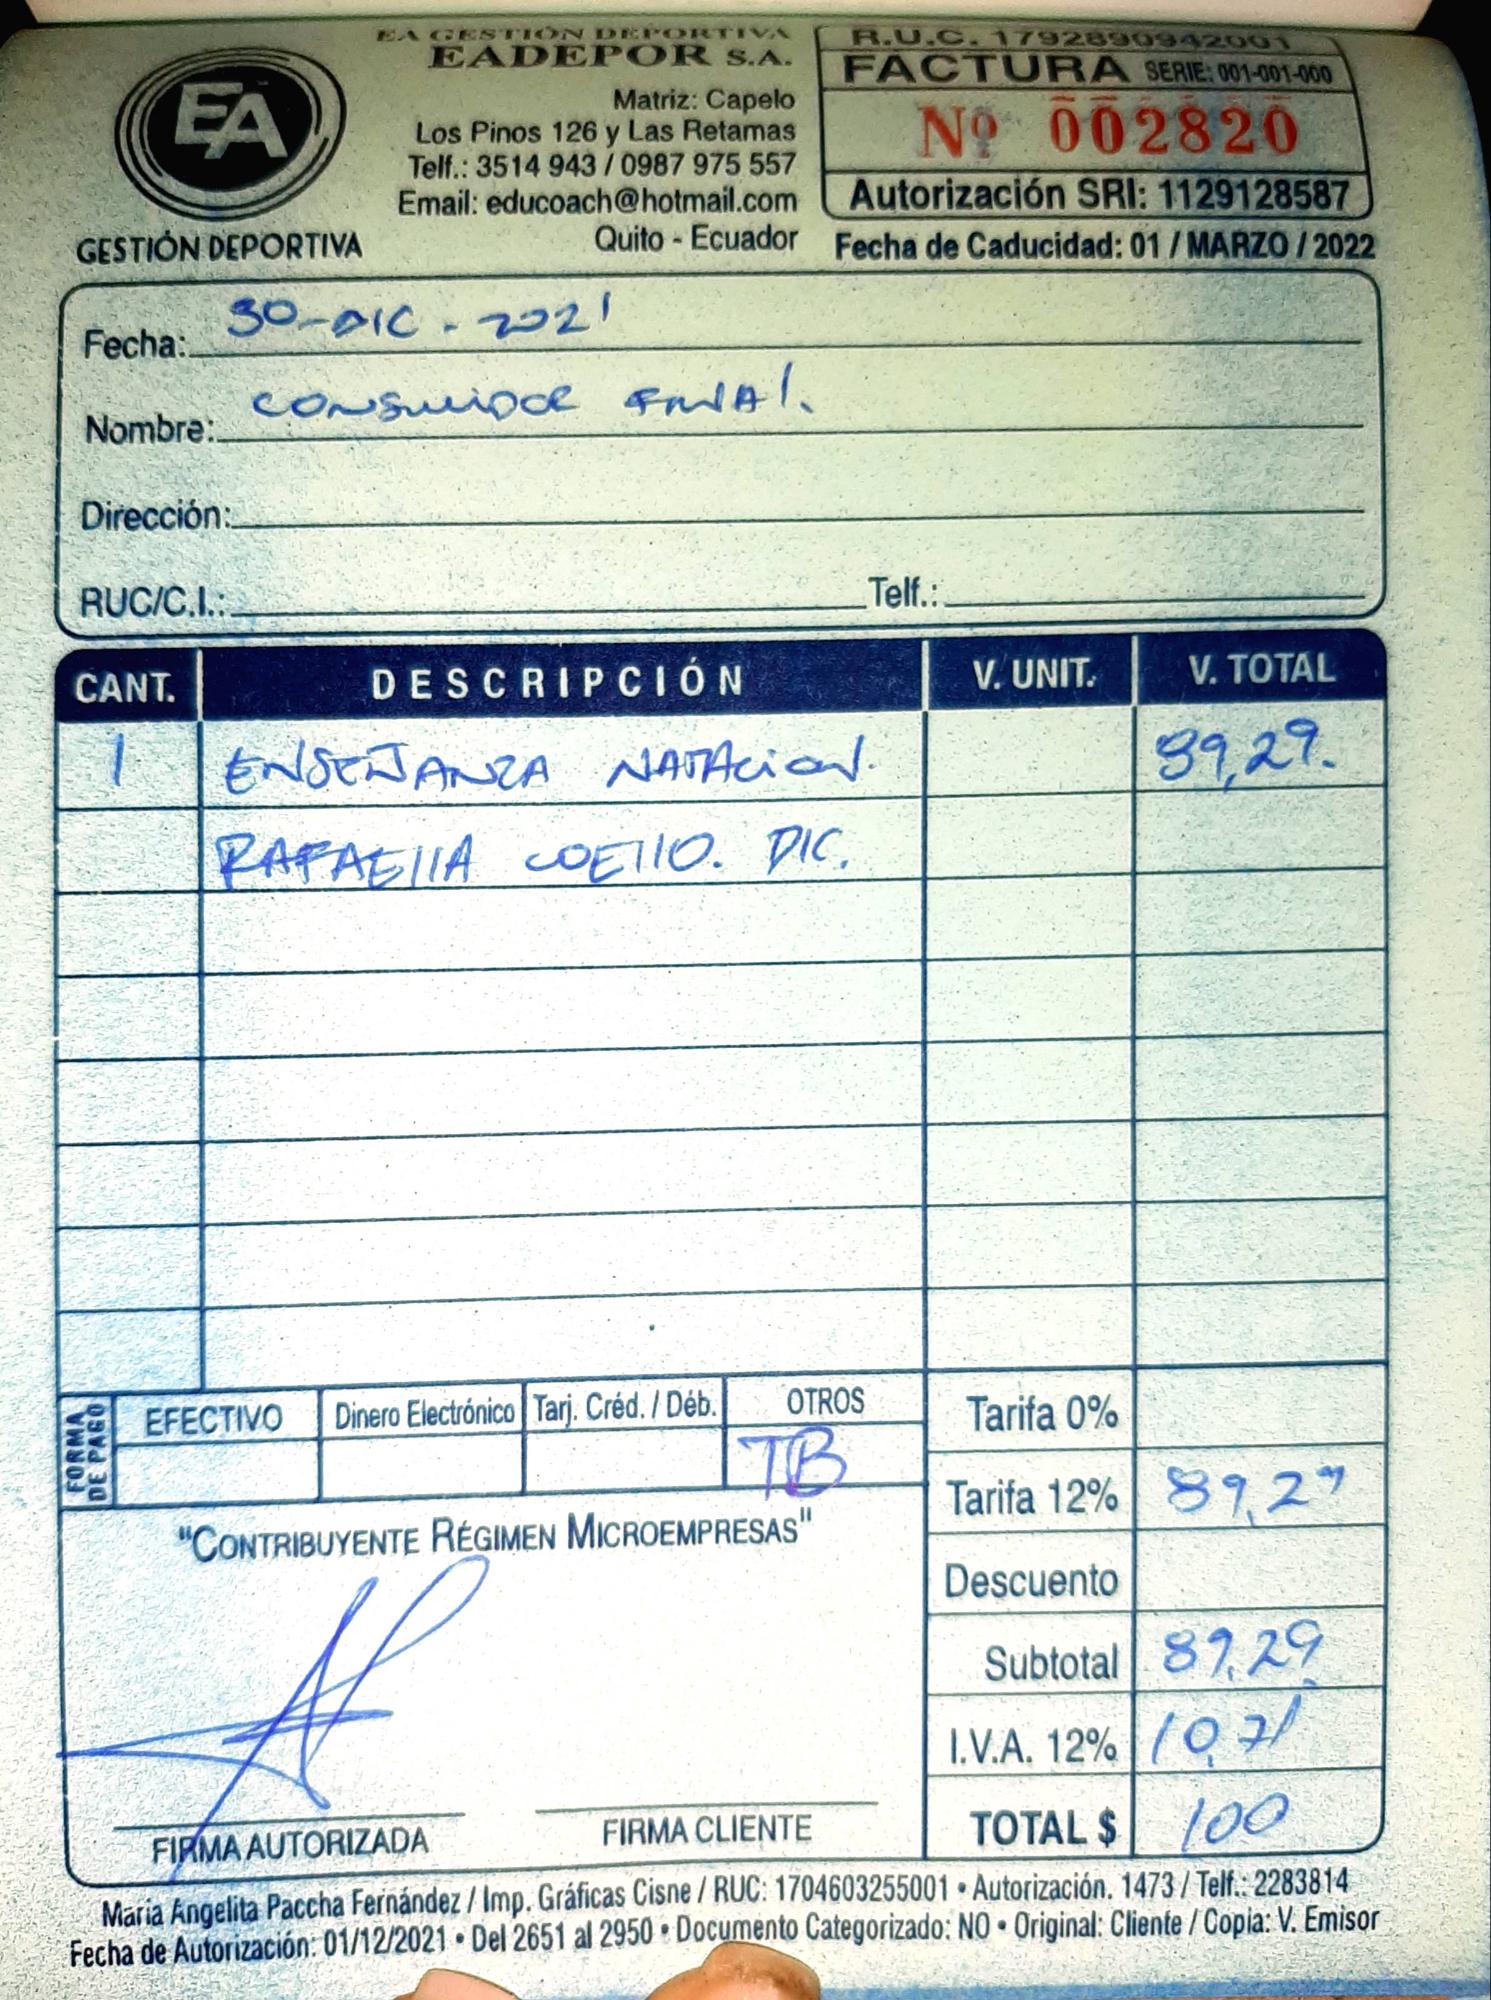 EA GESTIÓN DEPORTIVA
EADEPOR S.A.
Matriz: Capelo
Los Pinos 126 y Las Retamas
Telf.: 3514 943 / 0987 975 557
Email: educoach@hotmail.com
Quito - Ecuador
EA
GESTIÓN DEPORTIVA
R.U.C. 1792890942001
FACTURA SERIE: 001-001-000
Nº 002820
Autorización SRI: 1129128587
Fecha de Caducidad: 01 / MARZO / 2022
Fecha: 30-DIC-2021
Nombre: CONSUMIDOR FINAL.
Dirección:
RUC/C.I.: Telf.:
CANT. DESCRIPCIÓN V. UNIT. V. TOTAL
1 ENSEÑANZA NATACION. 89,29.
RAFAEllA COEllO. DIC.
FORMA DE PAGO
EFECTIVO Dinero Electrónico Tarj. Créd. / Déb. OTROS
TB
Tarifa 0%
Tarifa 12% 89,29
Descuento
Subtotal 89,29
I.V.A. 12% 10,71
TOTAL $ 100
"CONTRIBUYENTE RÉGIMEN MICROEMPRESAS"
FIRMA AUTORIZADA FIRMA CLIENTE
María Angelita Paccha Fernández / Imp. Gráficas Cisne / RUC: 1704603255001 • Autorización. 1473 / Telf.: 2283814
Fecha de Autorización: 01/12/2021 • Del 2651 al 2950 • Documento Categorizado: NO • Original: Cliente / Copia: V. Emisor